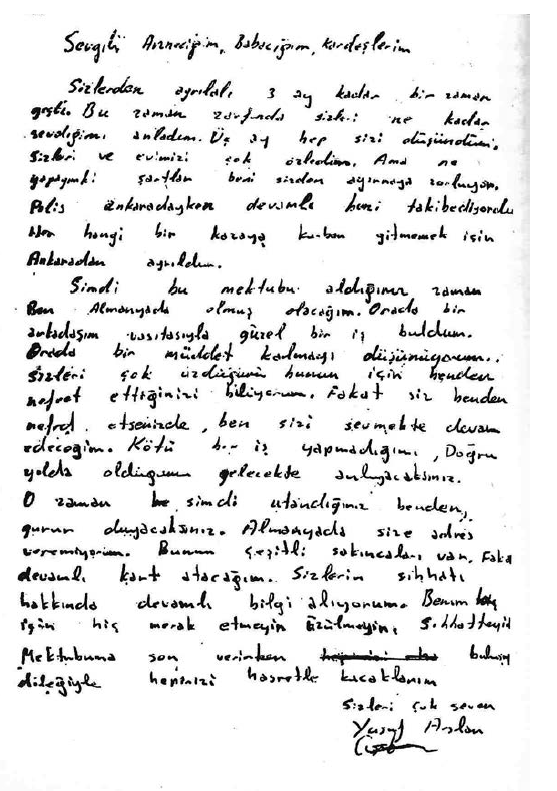 Sevgili Anneciğim, Babacığım, Kardeşlerim
Sizlerden ayrılalı 3 ay kadar bir zaman
geçti. Bu zaman zarfında sizleri ne kadar
sevdiğimi anladım. Üç ay hep sizi düşündüm.
Sizleri ve evimizi çok özledim. Ama ne
yapayımki şartlar beni sizden ayırmaya zorluyor.
Polis ankaradayken devamlı beni takibediyordu
Her hangi bir kazaya kurban gitmemek için
Ankaradan ayrıldım.
Şimdi bu mektubu aldığınız zaman
Ben Almanyada olmuş olacağım. Orada bir
arkadaşım vasıtasıyla güzel bir iş buldum.
Orada bir müddet kalmayı düşünüyorum..
Sizleri çok üzdüğümü bunun için benden
nefret ettiğinizi biliyorum. Fakat siz benden
nefret etsenizde, ben sizi sevmekte devam
edeceğim. Kötü bir iş yapmadığımı, Doğru
yolda olduğumu gelecekte anlıyacaksınız.
O zaman şimdi utandığınız benden,
gurur duyacaksınız. Almanyada size adres
veremiyorum. Bunun çeşitli sakıncaları var. Faka
devamlı kart atacağım. Sizlerin sıhhatı
hakkında devamlı bilgi alıyorum. Benim
için hiç merak etmeyin üzülmeyin, Sıhhatteyi
Mektubuma son verirken buluş
dileğiyle hepinizi hasretle kucaklarım
Sizleri çok seven
Yusuf Aslan